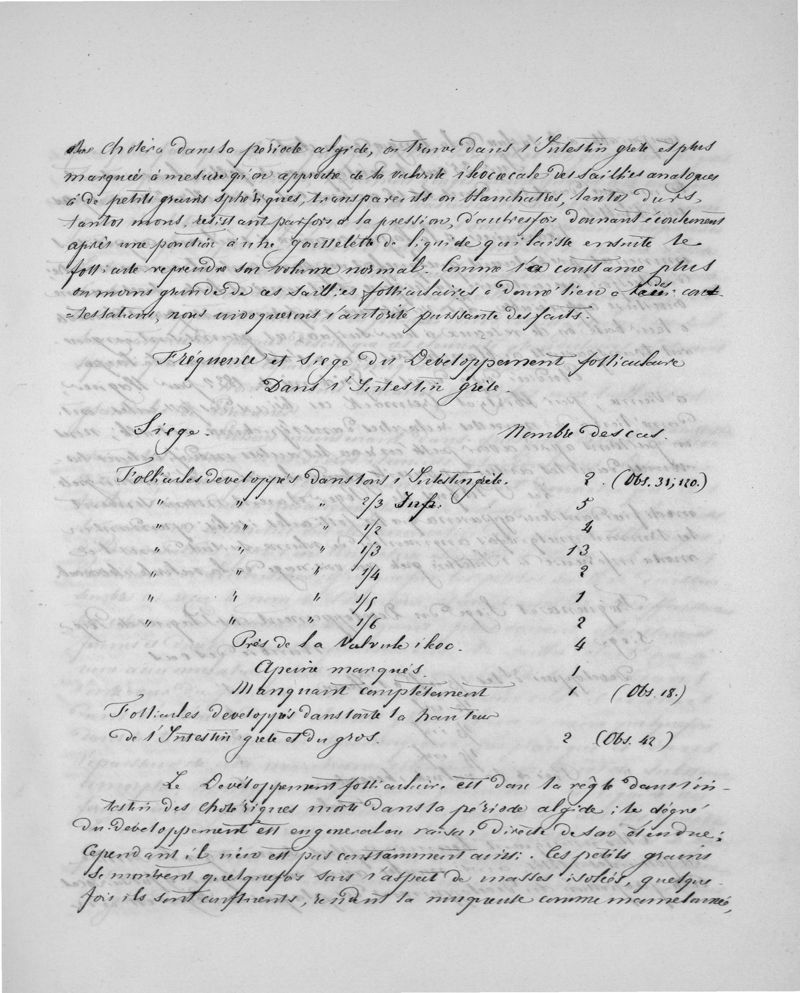 Cholera dans la periode algide, on trouve dans l'Intestin grêle et plus
marquées à mesure qu'on approche de la valvule ileocœcale des saillies analogues
à de petits grains spheriques, transparents ou blanchatres, tantot durs,
tantot mous, résistant parfois à la pression, d'autresfois donnant écoulement
après une ponction à une gouttelette de liquide qui laisse ensuite le
follicule reprendre son volume normal. Comme la constance plus
ou moins grande de ces saillies folliculaires a donné lieu a des con-
-testations, nous invoquerons l'autorité puissante des faits.
Fréquence et siege du Developpement folliculaire
Dans l'Intestin grêle.
Siege. Nombre des cas.
Follicules developpés dans tous l'Intestin grêle. 2. (Obs. 31, 120.)
" " " 2/3 Infr. 5
" " " 1/2 4
" " " 1/3 13
" " " 1/4 2
" " " 1/5 1
" " " 1/6 2
Près de la Valvule ileoc. 4
A peine marqués. 1
Manquant complètement 1 (Obs. 18.)
Follicules developpés dans toute la hauteur
de l'Intestin grêle et du gros. 2 (Obs. 42)
Le Devéloppement folliculaire est donc la règle dans l'in-
-testin des cholériques morts dans la période algide; le dégré
du developpement est en general en raison directe de son étendue;
Cependant il n'en est pas constamment ainsi. Ces petits grains
se montrent quelquefois sous l'aspect de masses isolées, quelque-
fois ils sont confluents, rendant la muqueuse comme mamelonnée,